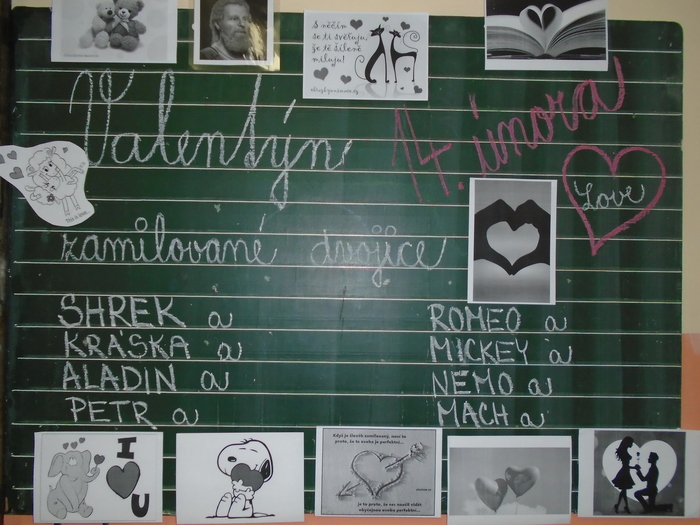 S něčím
se ti svěřuju,
že tě šíleně
miluju!
Valentýn
14. února
Love
zamilované dvojice
SHREK a
KRÁSKA a
ALADIN a
PETR a
ROMEO a
MICKEY a
NEMO a
MACH a
I
U
Když je člověk zamilovaný, není to
proto, že to je perfektní...
je to proto, že vás naučil vidět
obyčejnou osobu perfektní...